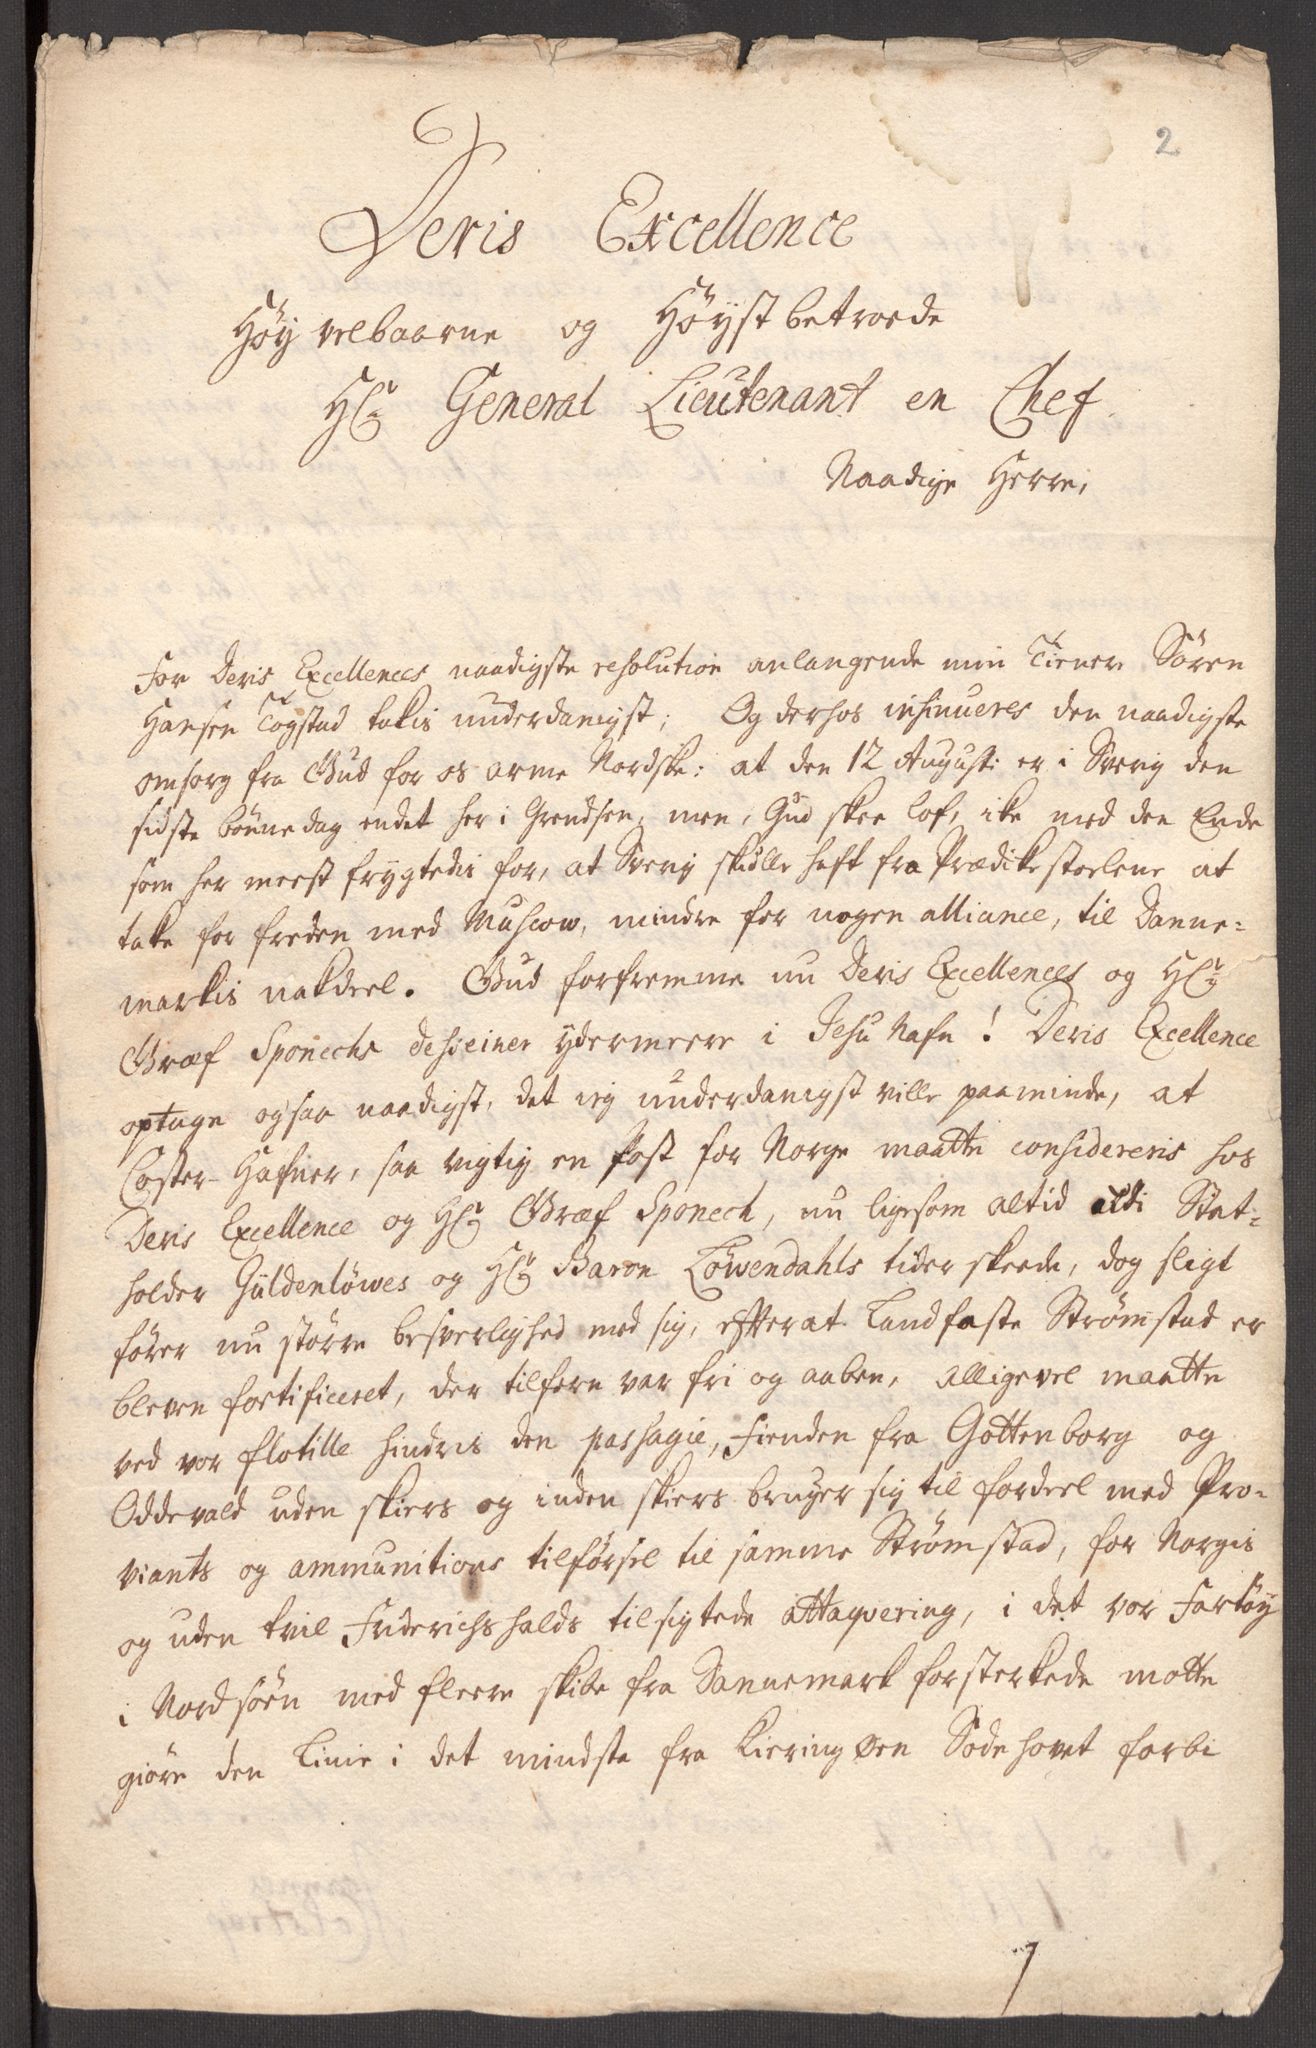 2
Deris Excellence
Höÿ velbaarne og Höÿst betroede
Hr General Lieutenant en Chef.
Naadige Herre,
For Deris Excellences naadigste resolution anlangende min Tiener Sören
Hansen Togstad takis underdanigst; Og derhos insinueres den naadigste
omsorg fra Gud for os arme Nordske: at den 12 August: er i Sverig den
sidste bönnedag endet her i Grendsen, men, Gud skee lof, ike med den Ende
som her meest frygtedis for, at Sverig skulle haft fra Prædikestoelene at
take for freden med Muscow, mindre for nogen alliance, til Danne-
markis nakdeel. Gud forfremme nu Deris Excellences og Hr
Græf Sponechs deseiner ydermeere i Jesu Nafn! Deris Excellence
optage ogsaa naadigst, det ieg underdanigst ville paaminde, at
Coster-Hafner, saa vigtig en Post for Norge maatte considereris hos
Deris Excellence og Hr Græf Sponeck, nu ligesom altid udi Stat-
holder Güldenlöwes og Hr Baron Löwendahls tider skeede, dog sligt
förer nu större besverlighed med sig, efterat Landfaste Strømstad er
bleven fortificeret, der tilforn var fri og aaben, alligevel maatte
ved vor flotille hindris den passagie, Fienden fra Gottenborg og
Oddevald uden skiers og inden skiers bruger sig til fordeel med Pro-
viants og ammunitions tilförsel til samme Strømstad, for Norgis
og uden tvil Friderichshalds tilsigtede attaqvering, i det vor Fartöÿ
i Nordsöen med fleere skibe fra Dannemark forsterkede motte
giöre den Linie i det mindste fra Kieringøen Sodehovet forbi